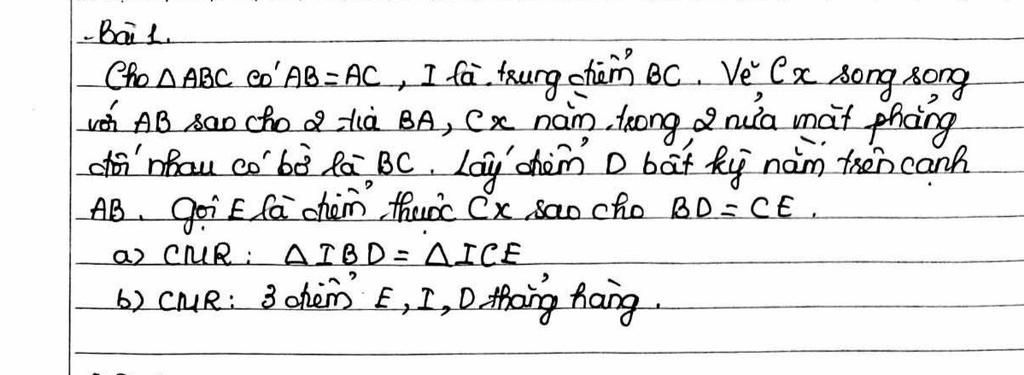 - Bài 1.
Cho △ABC có AB = AC, I là trung điểm BC. Vẽ Cx song song
với AB sao cho 2 tia BA, Cx nằm trong 2 nửa mặt phẳng
đối nhau có bờ là BC. Lấy điểm D bất kỳ nằm trên cạnh
AB. Gọi E là điểm thuộc Cx sao cho BD = CE.
a) CMR: △IBD = △ICE
b) CMR: 3 điểm E, I, D thẳng hàng.